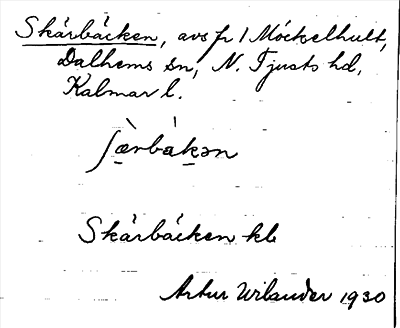 Skärbäcken, avs fr 1 Möckelhult,
Dalhems sn, N. Tjusts hd,
Kalmar l.
ʃæ̀rbàkən
Skärbäcken kb
Artur Wilander 1930